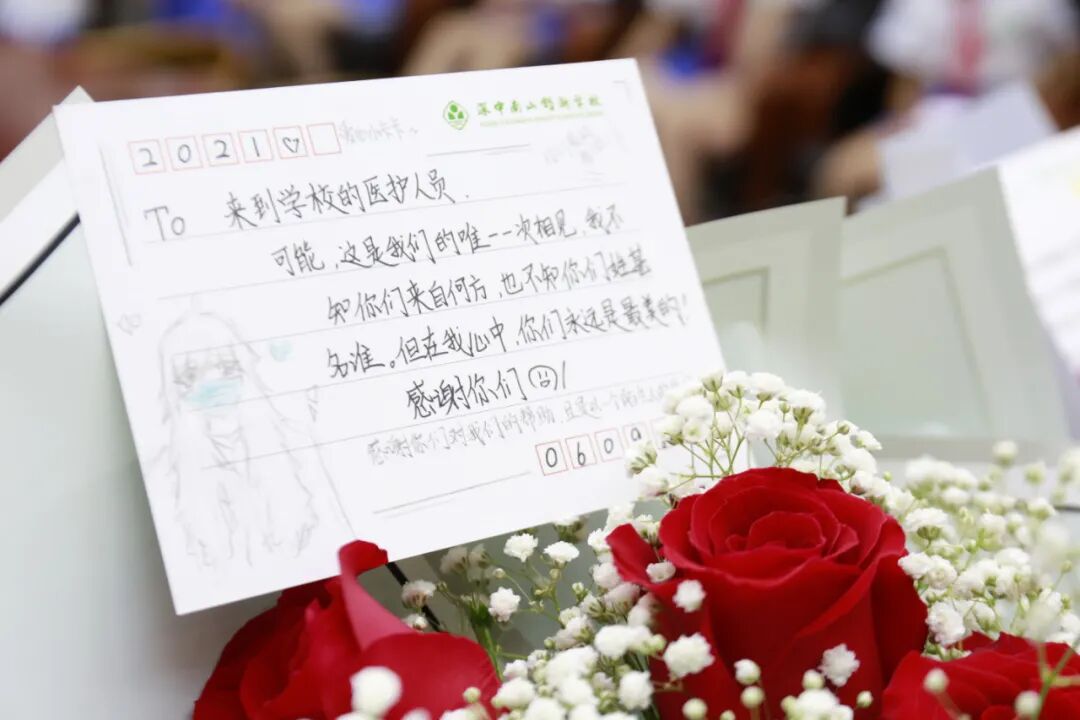 深中南山创新学校
2021♡
To 来到学校的医护人员.
可能,这是我们的唯一一次相见,我不
知你们来自何方,也不知你们姓甚
名谁。但在我心中,你们永远是最美的!
感谢你们☺!
感谢你们对我们的帮助,
0609